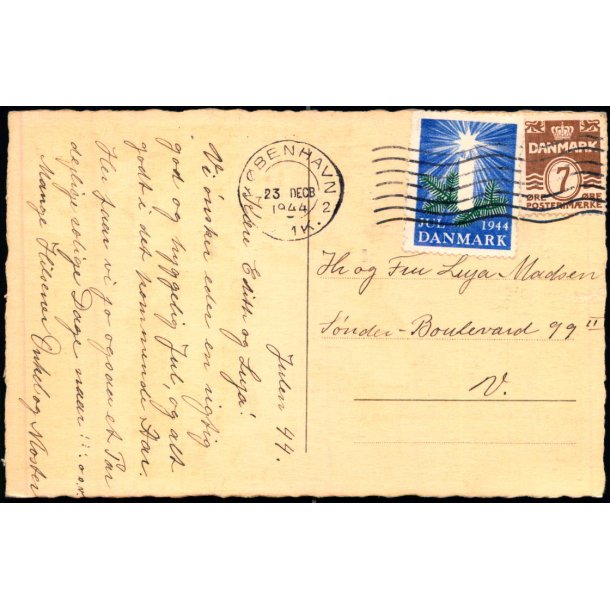 KØBENHAVN 2
23 DECB
1944
1K.
JUL 1944
DANMARK
DANMARK
7
ØRE ØRE
POSTFRIMÆRKE
Julen 44.
Kære Edith og Luja!
Vi ønsker eder en rigtig
god og hyggelig Jul, og alt
godt i det kommende Aar.
Her faar vi jo ogsaa et Par
dejlige rolige Dage naar!!! o.o.v.
Mange Hilsener Onkel og Moster
Hr og Fru Luja Madsen
Sønder-Boulevard 99 II
V.